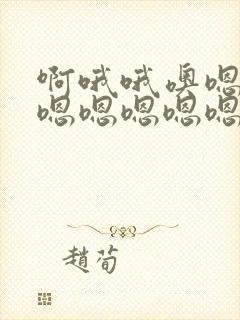 啊哦哦奥嗯
嗯嗯嗯嗯嗯
趙荀